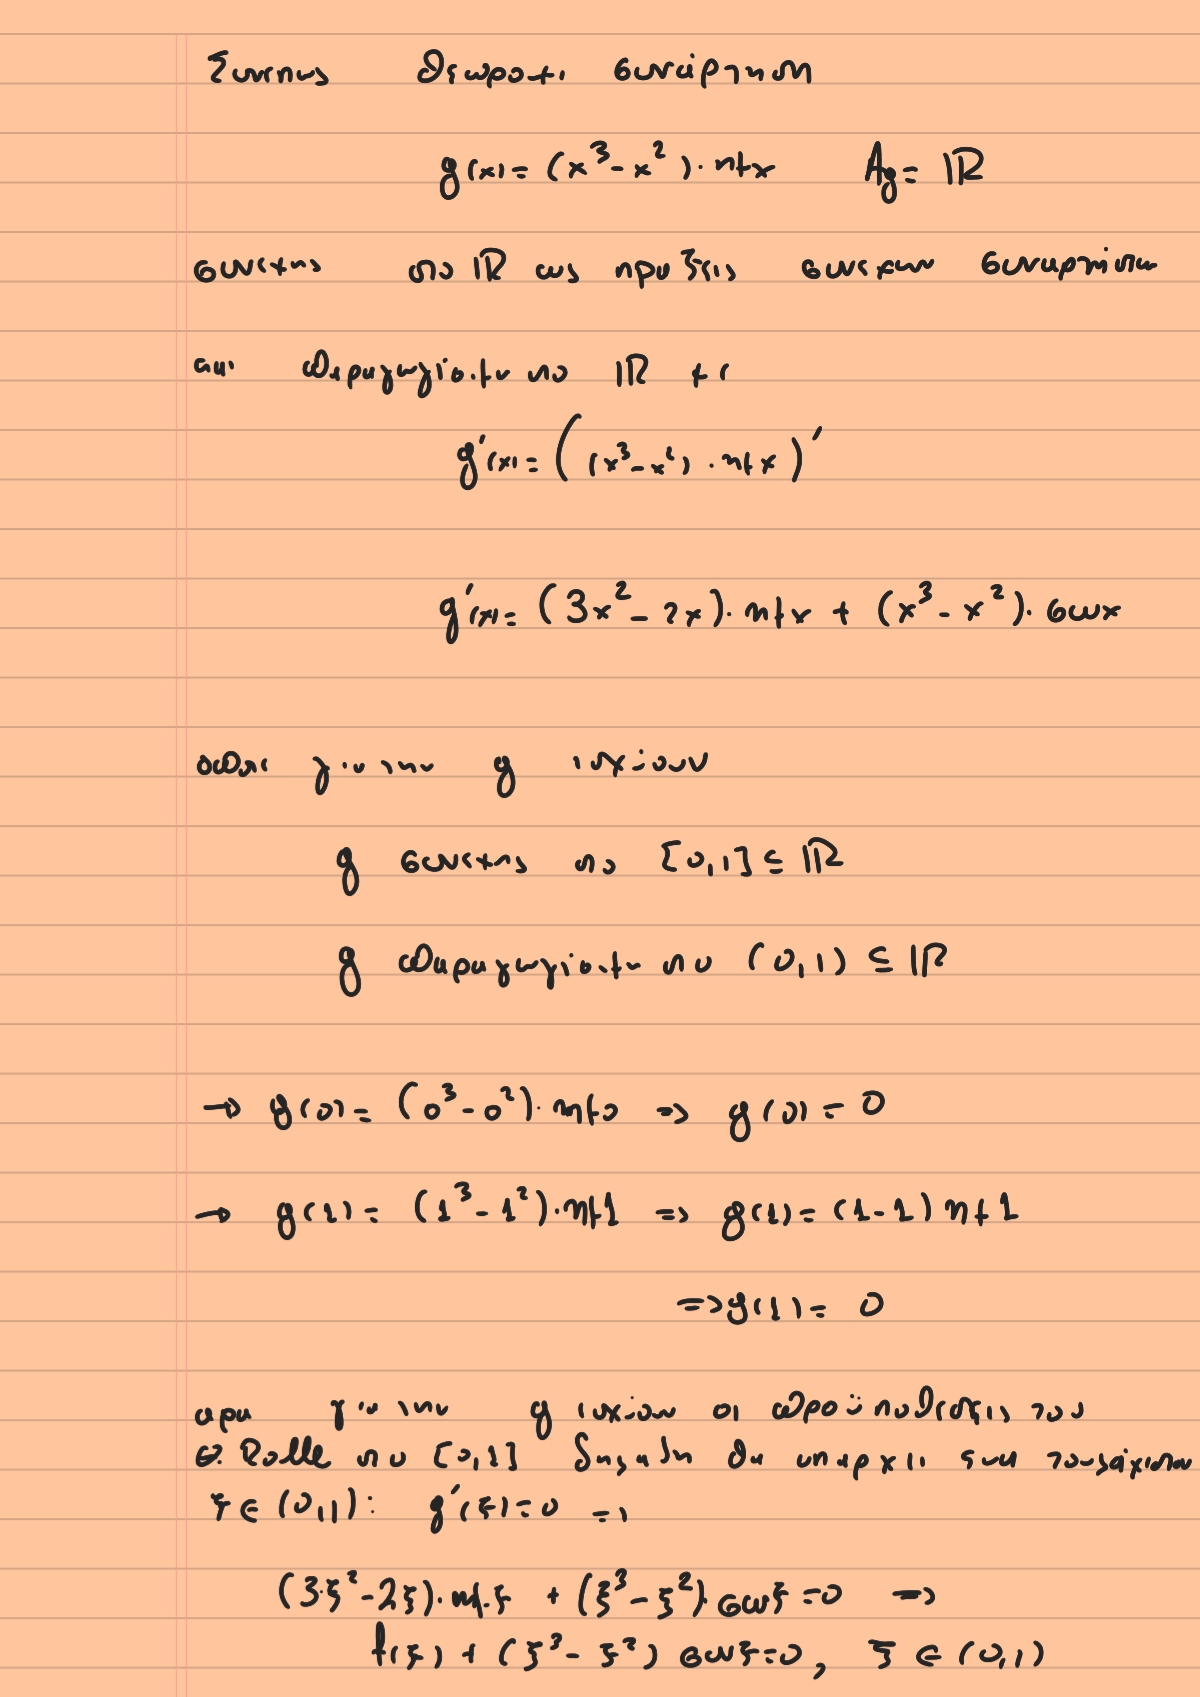 Συνεπως θεωρουμε συνάρτηση
g(x) = (x³-x²)·ημx Ag = ℝ
συνεχης στο ℝ ως πραξεις συνεχων συναρτήσεων
και παραγωγίσιμη στο ℝ με
g'(x) = ((x³-x²)·ημx)'
g'(x) = (3x²-2x)·ημx + (x³-x²)·συνx
οποτε για την g ισχύουν
g συνεχης στο [0,1] ⊆ ℝ
g παραγωγίσιμη στο (0,1) ⊆ ℝ
→ g(0) = (0³-0²)·ημ0 => g(0) = 0
→ g(1) = (1³-1²)·ημ1 => g(1) = (1-1)ημ1
=> g(1) = 0
αρα για την g ισχύουν οι προϋποθεσεις του
Θ. Rolle στο [0,1] δηλαδη θα υπαρχει ενα τουλάχιστον
ξ ∈ (0,1): g'(ξ) = 0 =>
(3·ξ²-2ξ)·ημ·ξ + (ξ³-ξ²)·συνξ = 0 =>
f(ξ) + (ξ³-ξ²) συνξ = 0, ξ ∈ (0,1)